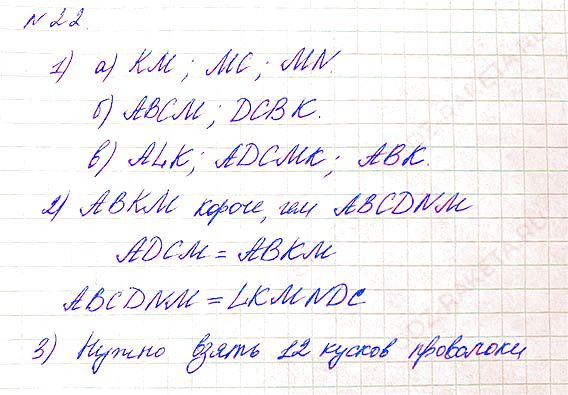 № 22.
1) а) KM; MC; MN.
б) ABCM; DCBK.
в) ALK; ADCMK; ABK.
2) ABKM короче, чем ABCDNM
ADCM = ABKM
ABCDNM = LKMNDC
3) Нужно взять 12 кусков проволоки